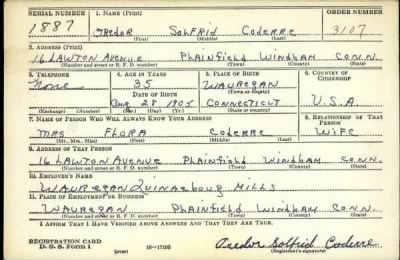 SERIAL NUMBER 1. NAME (Print) ORDER NUMBER
1887 Tredor Solfrid Coderre 3107
(First) (Middle) (Last)
2. ADDRESS (Print)
16 LAWTON AVENUE PLAINFIELD WINDHAM CONN.
(Number and street or R. F. D. number) (Town) (County) (State)
3. TELEPHONE 4. AGE IN YEARS 5. PLACE OF BIRTH 6. COUNTRY OF CITIZENSHIP
None 35 WAUREGAN
DATE OF BIRTH (Town or county)
Aug 28 1905 CONNECTICUT U.S.A
(Exchange) (Number) (Mo.) (Day) (Yr.) (State or country)
7. NAME OF PERSON WHO WILL ALWAYS KNOW YOUR ADDRESS 8. RELATIONSHIP OF THAT PERSON
MRS FLORA Coderre WIFE
(Mr., Mrs., Miss) (First) (Middle) (Last)
9. ADDRESS OF THAT PERSON
16 LAWTON AVENUE PLAINFIELD WINDHAM CONN.
(Number and street or R. F. D. number) (Town) (County) (State)
10. EMPLOYER'S NAME
WAUREGAN QUINAEBOUG MILLS
11. PLACE OF EMPLOYMENT OR BUSINESS
WAUREGAN PLAINFIELD WINDHAM CONN.
(Number and street or R. F. D. number) (Town) (County) (State)
I AFFIRM THAT I HAVE VERIFIED ABOVE ANSWERS AND THAT THEY ARE TRUE.
REGISTRATION CARD
D. S. S. Form 1 (over) 16—17105 Tredor Solfrid Coderre
(Registrant's signature)